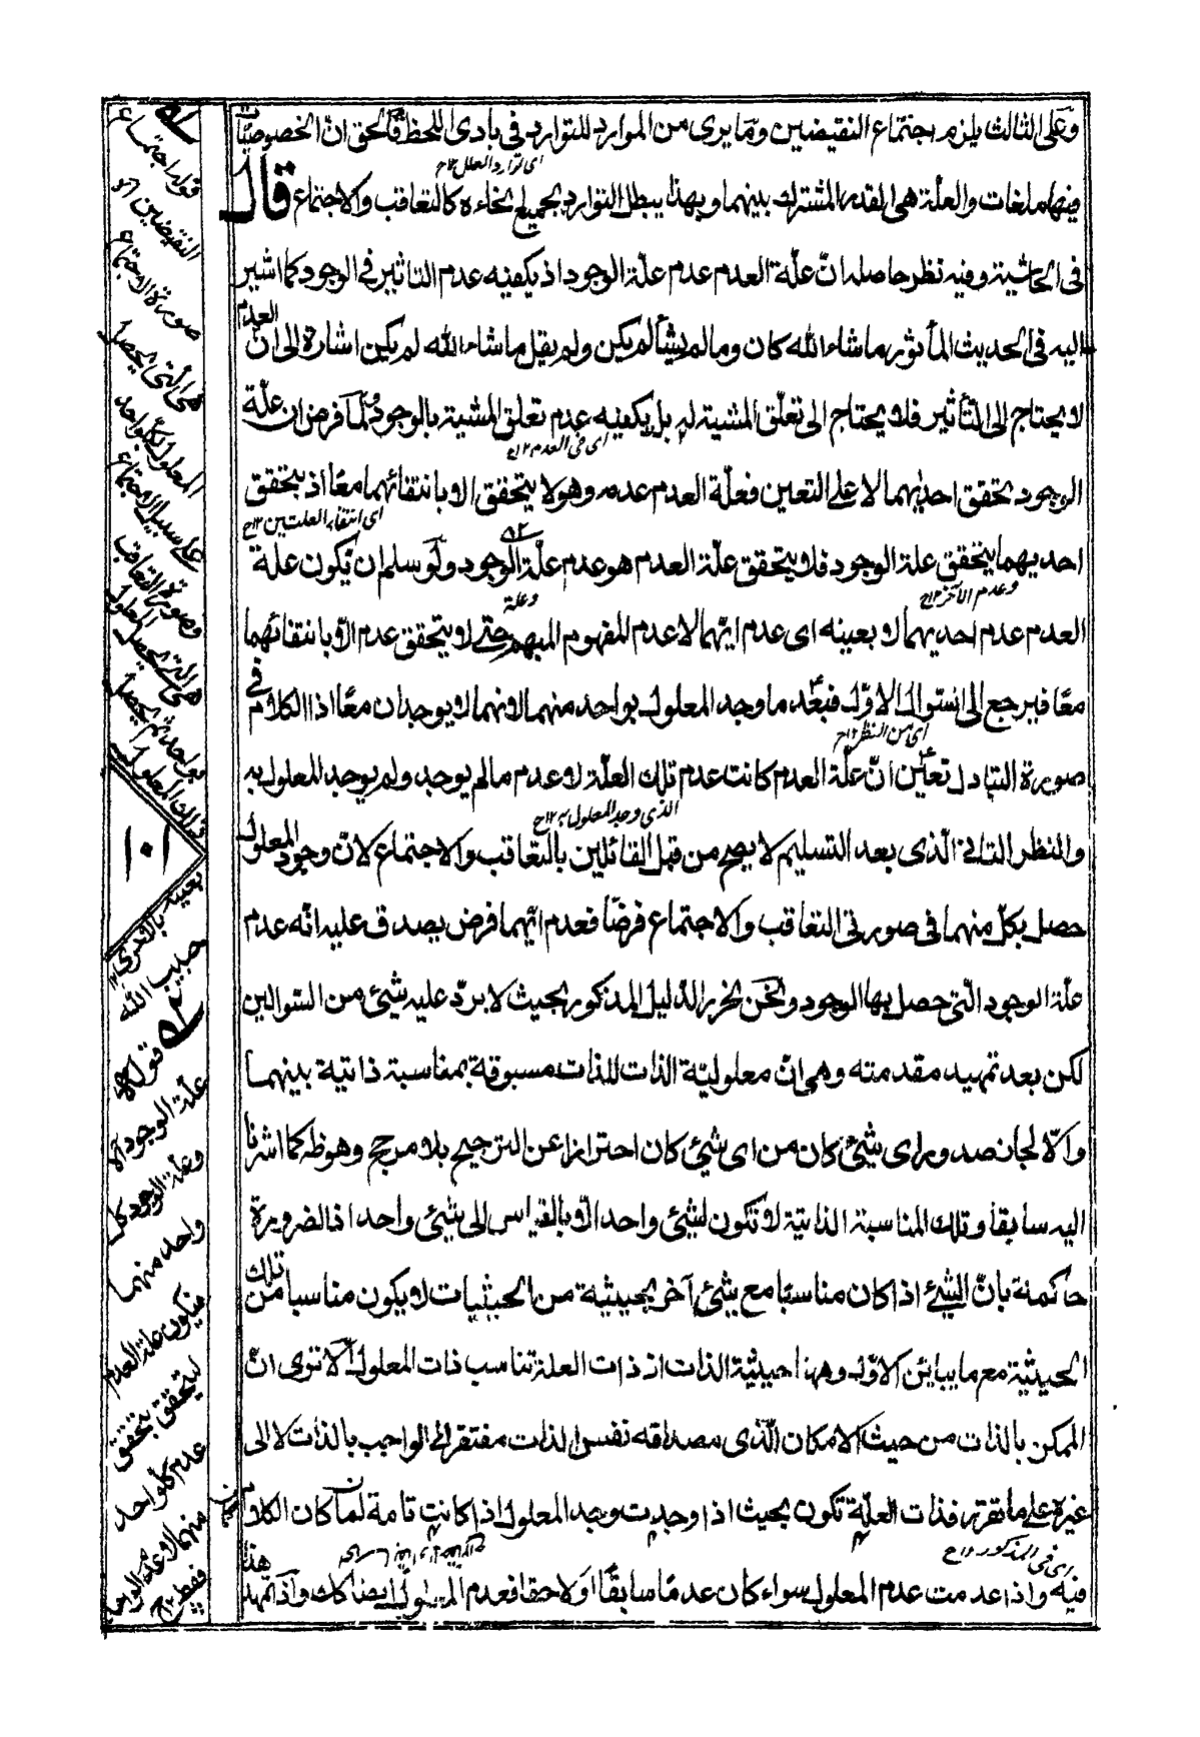 وعلى الثالث يلزم اجتماع النقيضين وما يرى من الموارد للتوارد في بادى اللحظ فالحق ان الخصوصيات
اى توارد العلل ١٢ ح
فيها ملغات والعلة هى القدر المشترك بينهما وبهذا يبطل التوارد بجميع انحاءه كالتعاقب والاجتماع قال
فى الحاشية وفيه نظر حاصله ان علة العدم عدم علة الوجود اذ يكفيه عدم التاثير فى الوجود كما اشير
اليه فى الحديث المأثور ما شاء الله كان وما لم يشأ لم يكن ولم يقل ما شاء الله لم يكن اشارة الى ان العدم
لا يحتاج الى التأثير فلا يحتاج الى تعلق المشية له بل يكفيه عدم تعلق المشية بالوجود ولما فرض ان علة
اى فى العدم ١٢ ح
الوجود تحقق احديهما لا على التعين فعلة العدم عدمه وهو لا يتحقق الا بانتفائهما معا اذ بتحقق
اى انتفاء العلتين ١٢ ح
احديهما يتحقق علة الوجود فلا يتحقق علة العدم هو عدم علة الوجود ولو سلم ان يكون علة
وعدم الآخر ١٢ ح
العدم عدم احديهما لا بعينه اى عدم ايهما لا عدم المفهوم المبهم حتى لا يتحقق عدم الا بانتفائهما
معا فيرجع الى السوال الاول فبعد ما وجد المعلول بواحد منهما لانهما لا يوجدان معا اذ الكلام فى
اى من النظر ١٢ ح
صورة التبادل تعين ان علة العدم كانت عدم تلك العلة لا عدم ما لم يوجد ولم يوجد المعلول به
الذى وجد المعلول به ١٢ ح
والنظر الثانى الذى بعد التسليم لا يصح من قبل القائلين بالتعاقب والاجتماع لان وجود المعلول
حصل بكل منهما فى صورتى التعاقب والاجتماع فرضا فعدم ايهما فرض يصدق عليه انه عدم
علة الوجود التى حصل بها الوجود ونحن نحرر الدليل المذكور بحيث لا يرد عليه شئ من السوالين
لكن بعد تمهيد مقدمته وهى ان معلولية الذات للذات مسبوقة بمناسبة ذاتية بينهما
والا لجاز صدور اى شئ كان من اى شئ كان احترازا عن الترجيح بلا مرجح وهو ظ كما اشرنا
اليه سابقا وتلك المناسبة الذاتية لا تكون لشئ واحد الا بالقياس الى شئ واحد اذ الضرورة
حاكمة بان الشئ اذا كان مناسبا مع شئ آخر بحيثية من الحيثيات لا يكون مناسبا من تلك
الحيثية مع ما يباين الاول وههنا حيثية الذات اذ ذات العلة تناسب ذات المعلول الا ترى ان
الممكن بالذات من حيث الامكان الذى مصداقه نفس الذات مفتقر الى الواجب بالذات لا الى
غيره على ما تقرر فذات العلة تكون بحيث اذا وجدت وجد المعلول اذا كانت تامة لما كان الكلام
اى فى المذكور ١٢ ح
فيه واذا عدمت عدم المعلول سواء كان عدما سابقا او لاحقا فعدم المعلول ايضا كك واذا تمهد هذا
قوله اجتماع
النقيضين اه
صورة الاجتماع
هى التى يحصل
المعلول بكل واحد
على سبيل الاجتماع
وصورة التعاقب
هى التى يحصل المعلول
بواحد ثم يحصل
ذلك المعلول
١٠١
بعينه بالاخرى ١٢
حبيب الله
قوله
علة الوجود اه
وعلة الوجود كل
واحد منهما
فيكون علة العدم
يتحقق بتحقق
عدم كل واحد
منهما لا عدم الواحد
فقط ١٢ ح